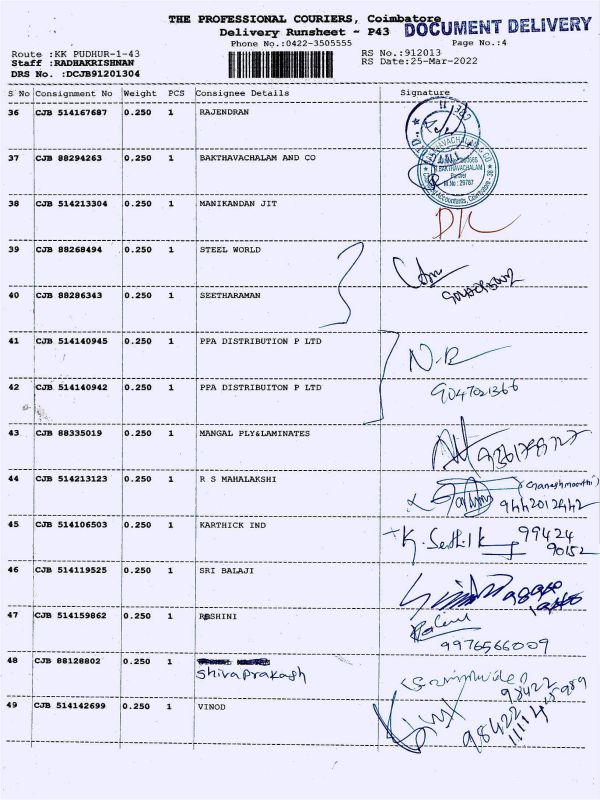 THE PROFESSIONAL COURIERS, Coimbatore
DOCUMENT DELIVERY
Delivery Runsheet ~ P43
Phone No.:0422-3505555
Page No.:4
Route :KK PUDHUR-1-43
RS No.:912013
Staff :RADHAKRISHNAN
RS Date:25-Mar-2022
DRS No. :DCJB91201304
S No Consignment No Weight PCS Consignee Details Signature
36 CJB 514167687 0.250 1 RAJENDRAN
37 CJB 88294263 0.250 1 BAKTHAVACHALAM AND CO
BAKTHAVACHALAM
Partner
M.No.: 29787
38 CJB 514213304 0.250 1 MANIKANDAN JIT
39 CJB 88268494 0.250 1 STEEL WORLD
40 CJB 88286343 0.250 1 SEETHARAMAN
41 CJB 514140945 0.250 1 PPA DISTRIBUTION P LTD
N-R
42 CJB 514140942 0.250 1 PPA DISTRIBUITON P LTD
9047021366
43 CJB 88335019 0.250 1 MANGAL PLY&LAMINATES
44 CJB 514213123 0.250 1 R S MAHALAKSHI
(Ganeshmoorthi)
9442012442
45 CJB 514106503 0.250 1 KARTHICK IND
K. Senthil K 99424
90152
46 CJB 514119525 0.250 1 SRI BALAJI
47 CJB 514159862 0.250 1 ROSHINI
9976566009
48 CJB 88128802 0.250 1
Shivaprakash
98422
49 CJB 514142699 0.250 1 VINOD
98422
11114